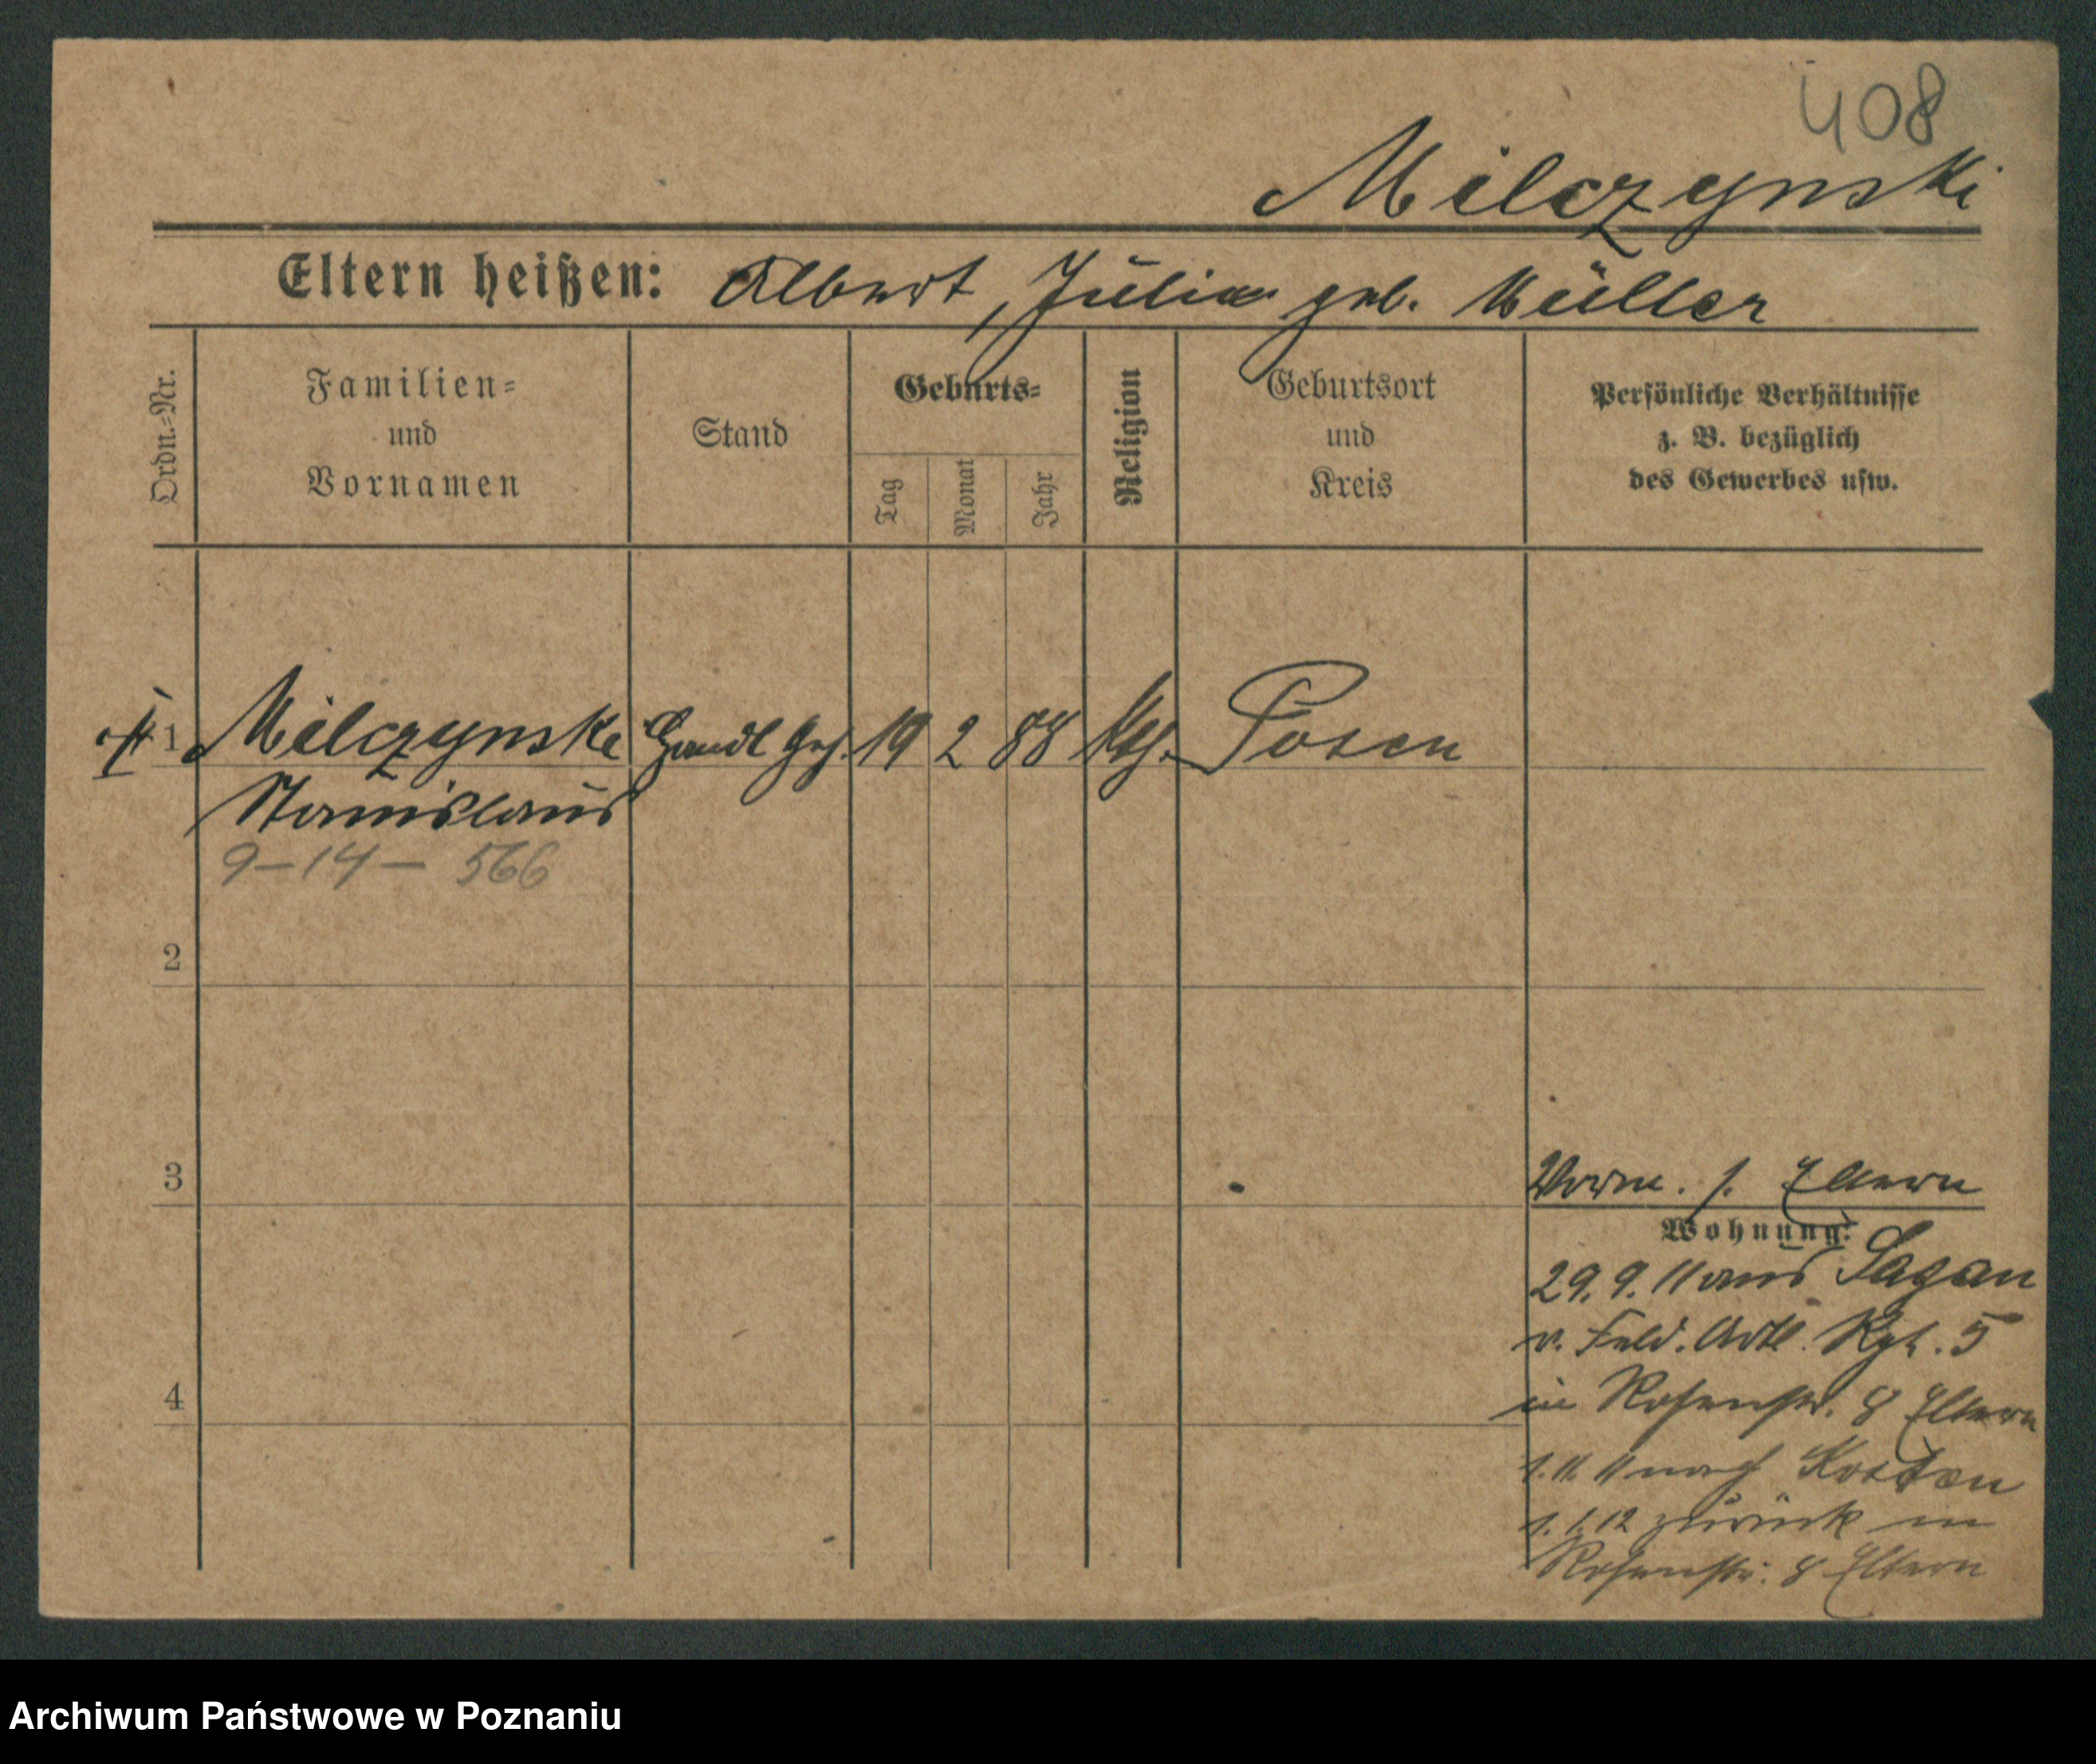 408
Milczynski
Eltern heißen: Albert, Julia geb. Müller
Ordn.-Nr.
Familien-
und
Vornamen
Stand
Geburts-
Tag
Monat
Jahr
Religion
Geburtsort
und
Kreis
Persönliche Verhältnisse
z. B. bezüglich
des Gewerbes usw.
1 Milczynski Handl Geh. 19 2 88 kth. Posen
Stanislaus
9-14- 566
2
3
s. Eltern
Wohnung:
29.9.11 aus Sagan
v. Feld. Artl. Rgt. 5
in Rosenstr. 8 Eltern
4
1.11.11 nach Kosten
1.1.12 zurück in
Rosenstr. 8 Eltern
Archiwum Państwowe w Poznaniu